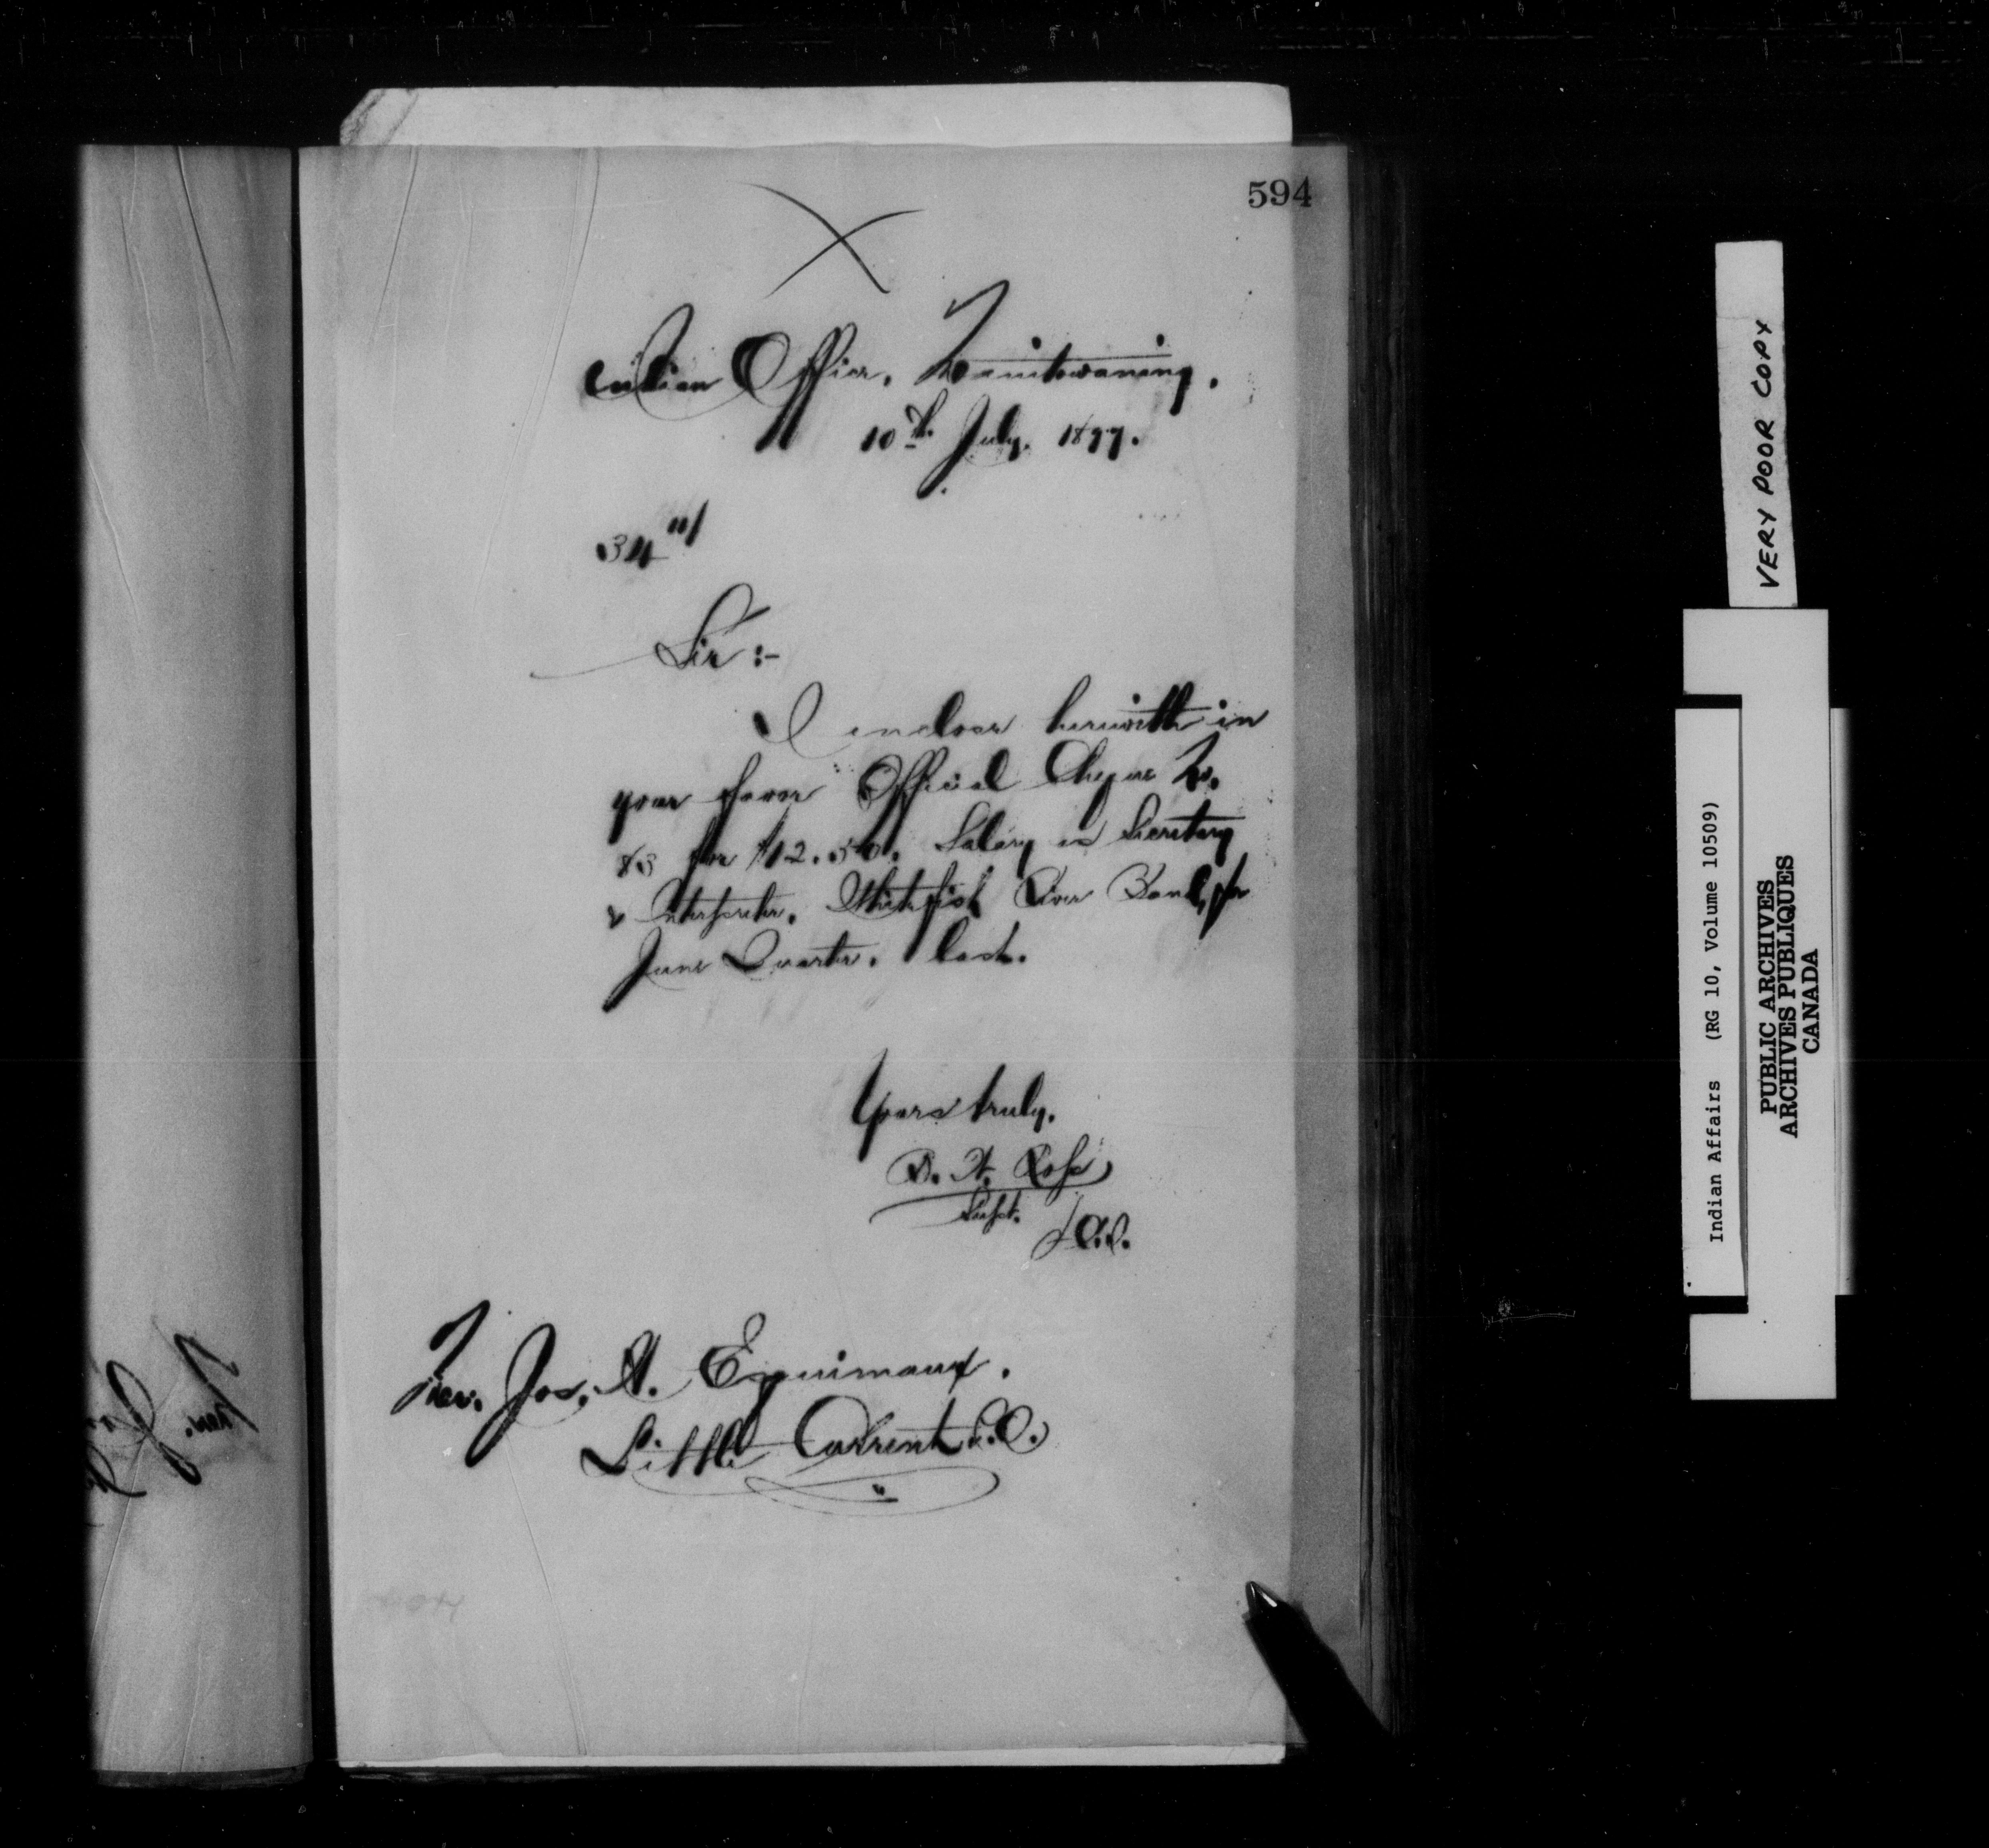 594
Indian Office, Manitowaning,
10th July, 1897.
34"/
Sir:-
I enclose herewith in
your favor Official Cheque No.
83 for $12.50, Salary as Secretary
& Interpreter, Whitefish River Band, for
June Quarter, last.
Yours truly,
B. W. Ross
Supt.
Rev. Jos. A. Esquimaux,
Little Current P.O.
VERY POOR COPY
Indian Affairs (RG 10, Volume 10509)
PUBLIC ARCHIVES
ARCHIVES PUBLIQUES
CANADA